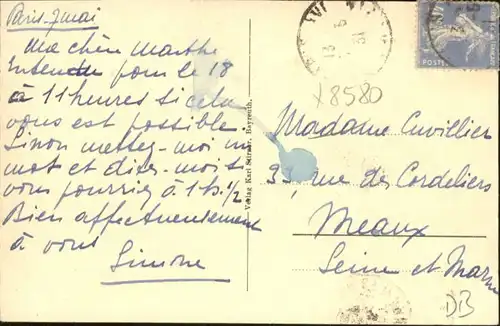 Paris-7 mai
Ma chère Marthe
Entendu pour le 18
à 11 heures si cela
vous est possible.
Sinon mettez-moi un
mot et dites-moi si
vous pourriez à 1h. 1/2
Bien affectueusement
à vous
Simone
Verlag Karl Bayreuth.
x8580
Madame Cuvillier
33, rue des Cordeliers
Meaux
Seine et Marne
DB
POSTES